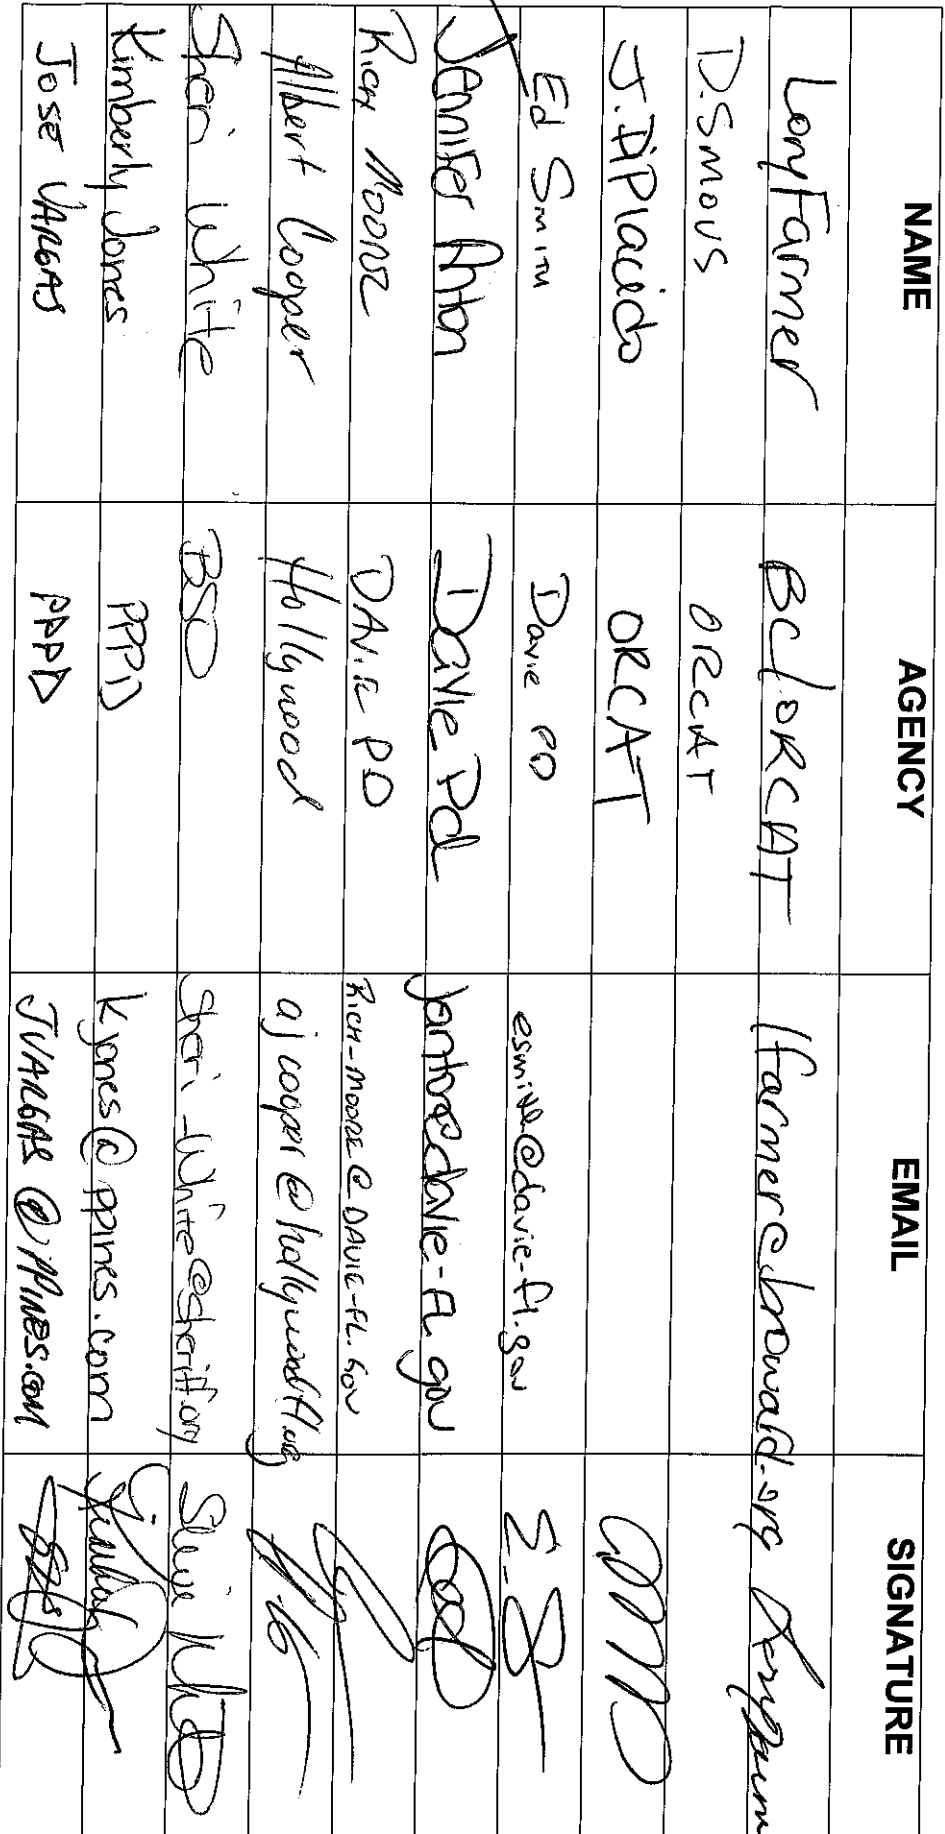 NAME AGENCY EMAIL SIGNATURE
Lory Farmer BC/ORCAT lfarmer@broward.org
D. Smous ORCAT
J. DiPlacido ORCAT
Ed Smith Davie PD esmith@davie-fl.gov
Jennifer Anton Davie Pd Janton@davie-FL.gov
RICH MOORE DAVIE PD RICH-MOORE@DAVIE-FL.GOV
Albert Cooper Hollywood ajcooper@hollywoodfl.org
Sheri White BSO Sheri_White@sheriff.org
Kimberly Jones PPPD Kjones@ppines.com
JOSE VARGAS PPPD JVARGAS@PPINES.COM